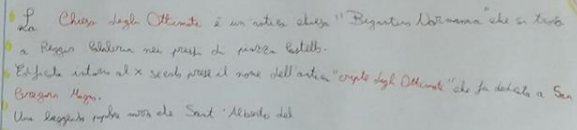 La Chiesa degli Ottimati è un'antica chiesa "Bizantino Normanna" che si trova
a Reggio Calabria nei pressi di piazza Castello.
Edificata intorno al X secolo prese il nome dell'antica "cripta degli Ottimati" che fu dedicata a San
Gregorio Magno.
Una leggenda popolare narra che Sant'Alberto del